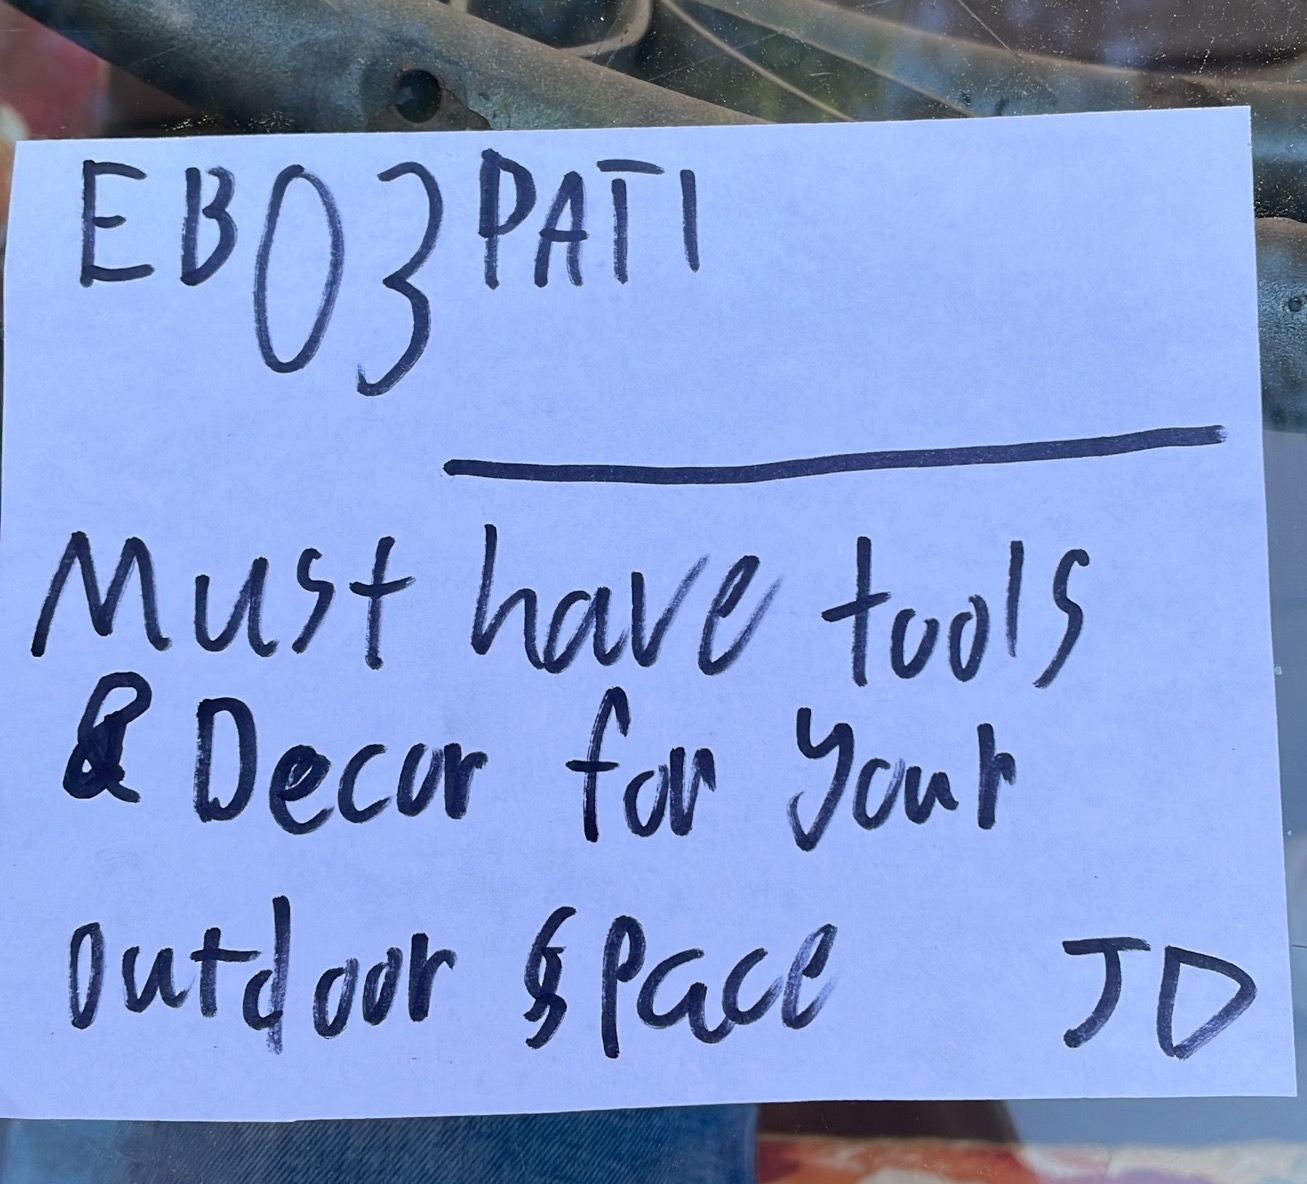 EB03PATI
Must have tools
& Decor for your
outdoor space JD